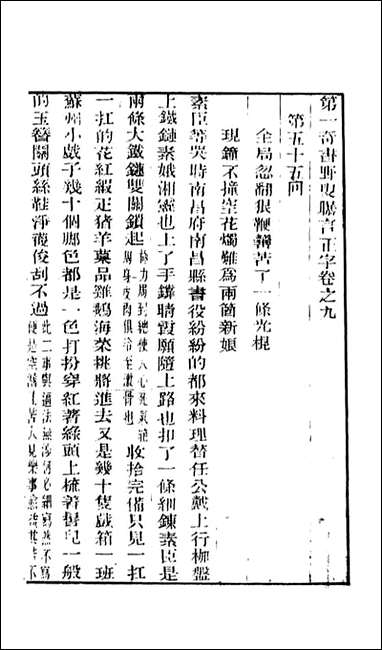 第一奇書野叟曝言正字卷之九
第五十五回
全局忽翻狠鞭韃苦了一條光棍
現鐘不撞空花燭難為兩箇新娘
素臣等哭時南昌府南昌縣書役紛紛的都來料理替任公戴上行枷盤
上鐵鏈素娥湘靈也上了手鐘晴霞願隨上路也扣了一條細鍊素臣是
兩條大鐵鏈雙關鎖起 收拾完備只見一扛
一扛的花紅緞疋豬羊菓品雞鵝海菜挑將進去又是幾十隻戲箱一班
蘇州小戲子幾十個脚色都是一色打扮穿紅著綠頭上梳著
的玉簪關頭絲鞋淨襪俊刮不過